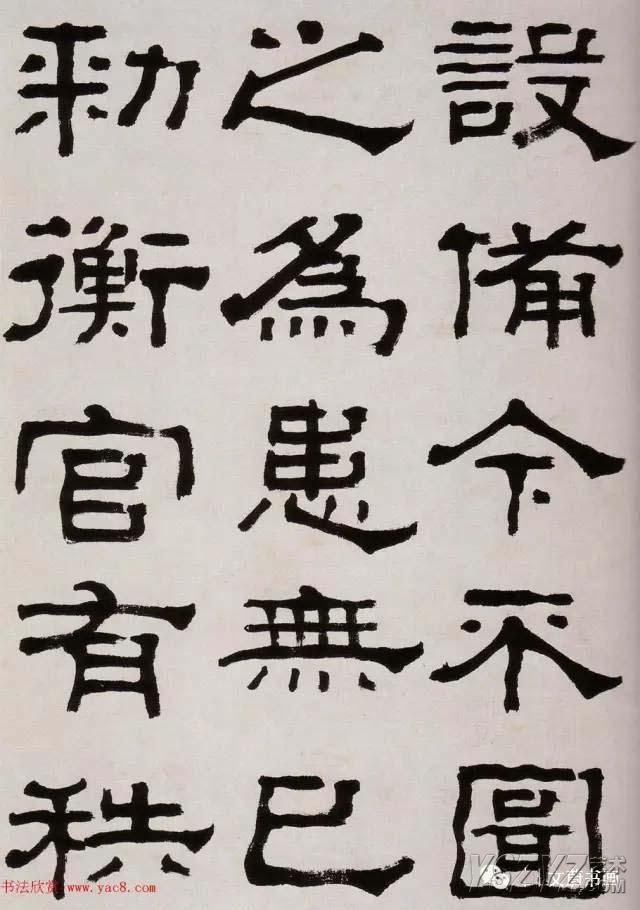 設備今不圖
之為患無已
勑衡官有秩
书法欣赏 www.yac8.com